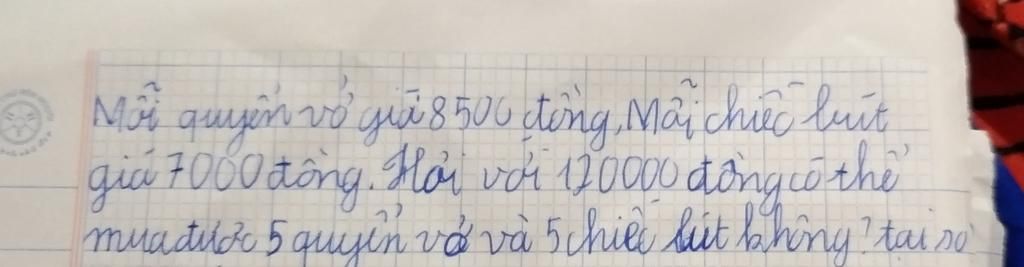 Mỗi quyển vở giá 8500 đồng, Mỗi chiếc bút
giá 7000 đồng. Hỏi với 120000 đồng có thể
mua được 5 quyển vở và 5 chiếc bút không? tại sao